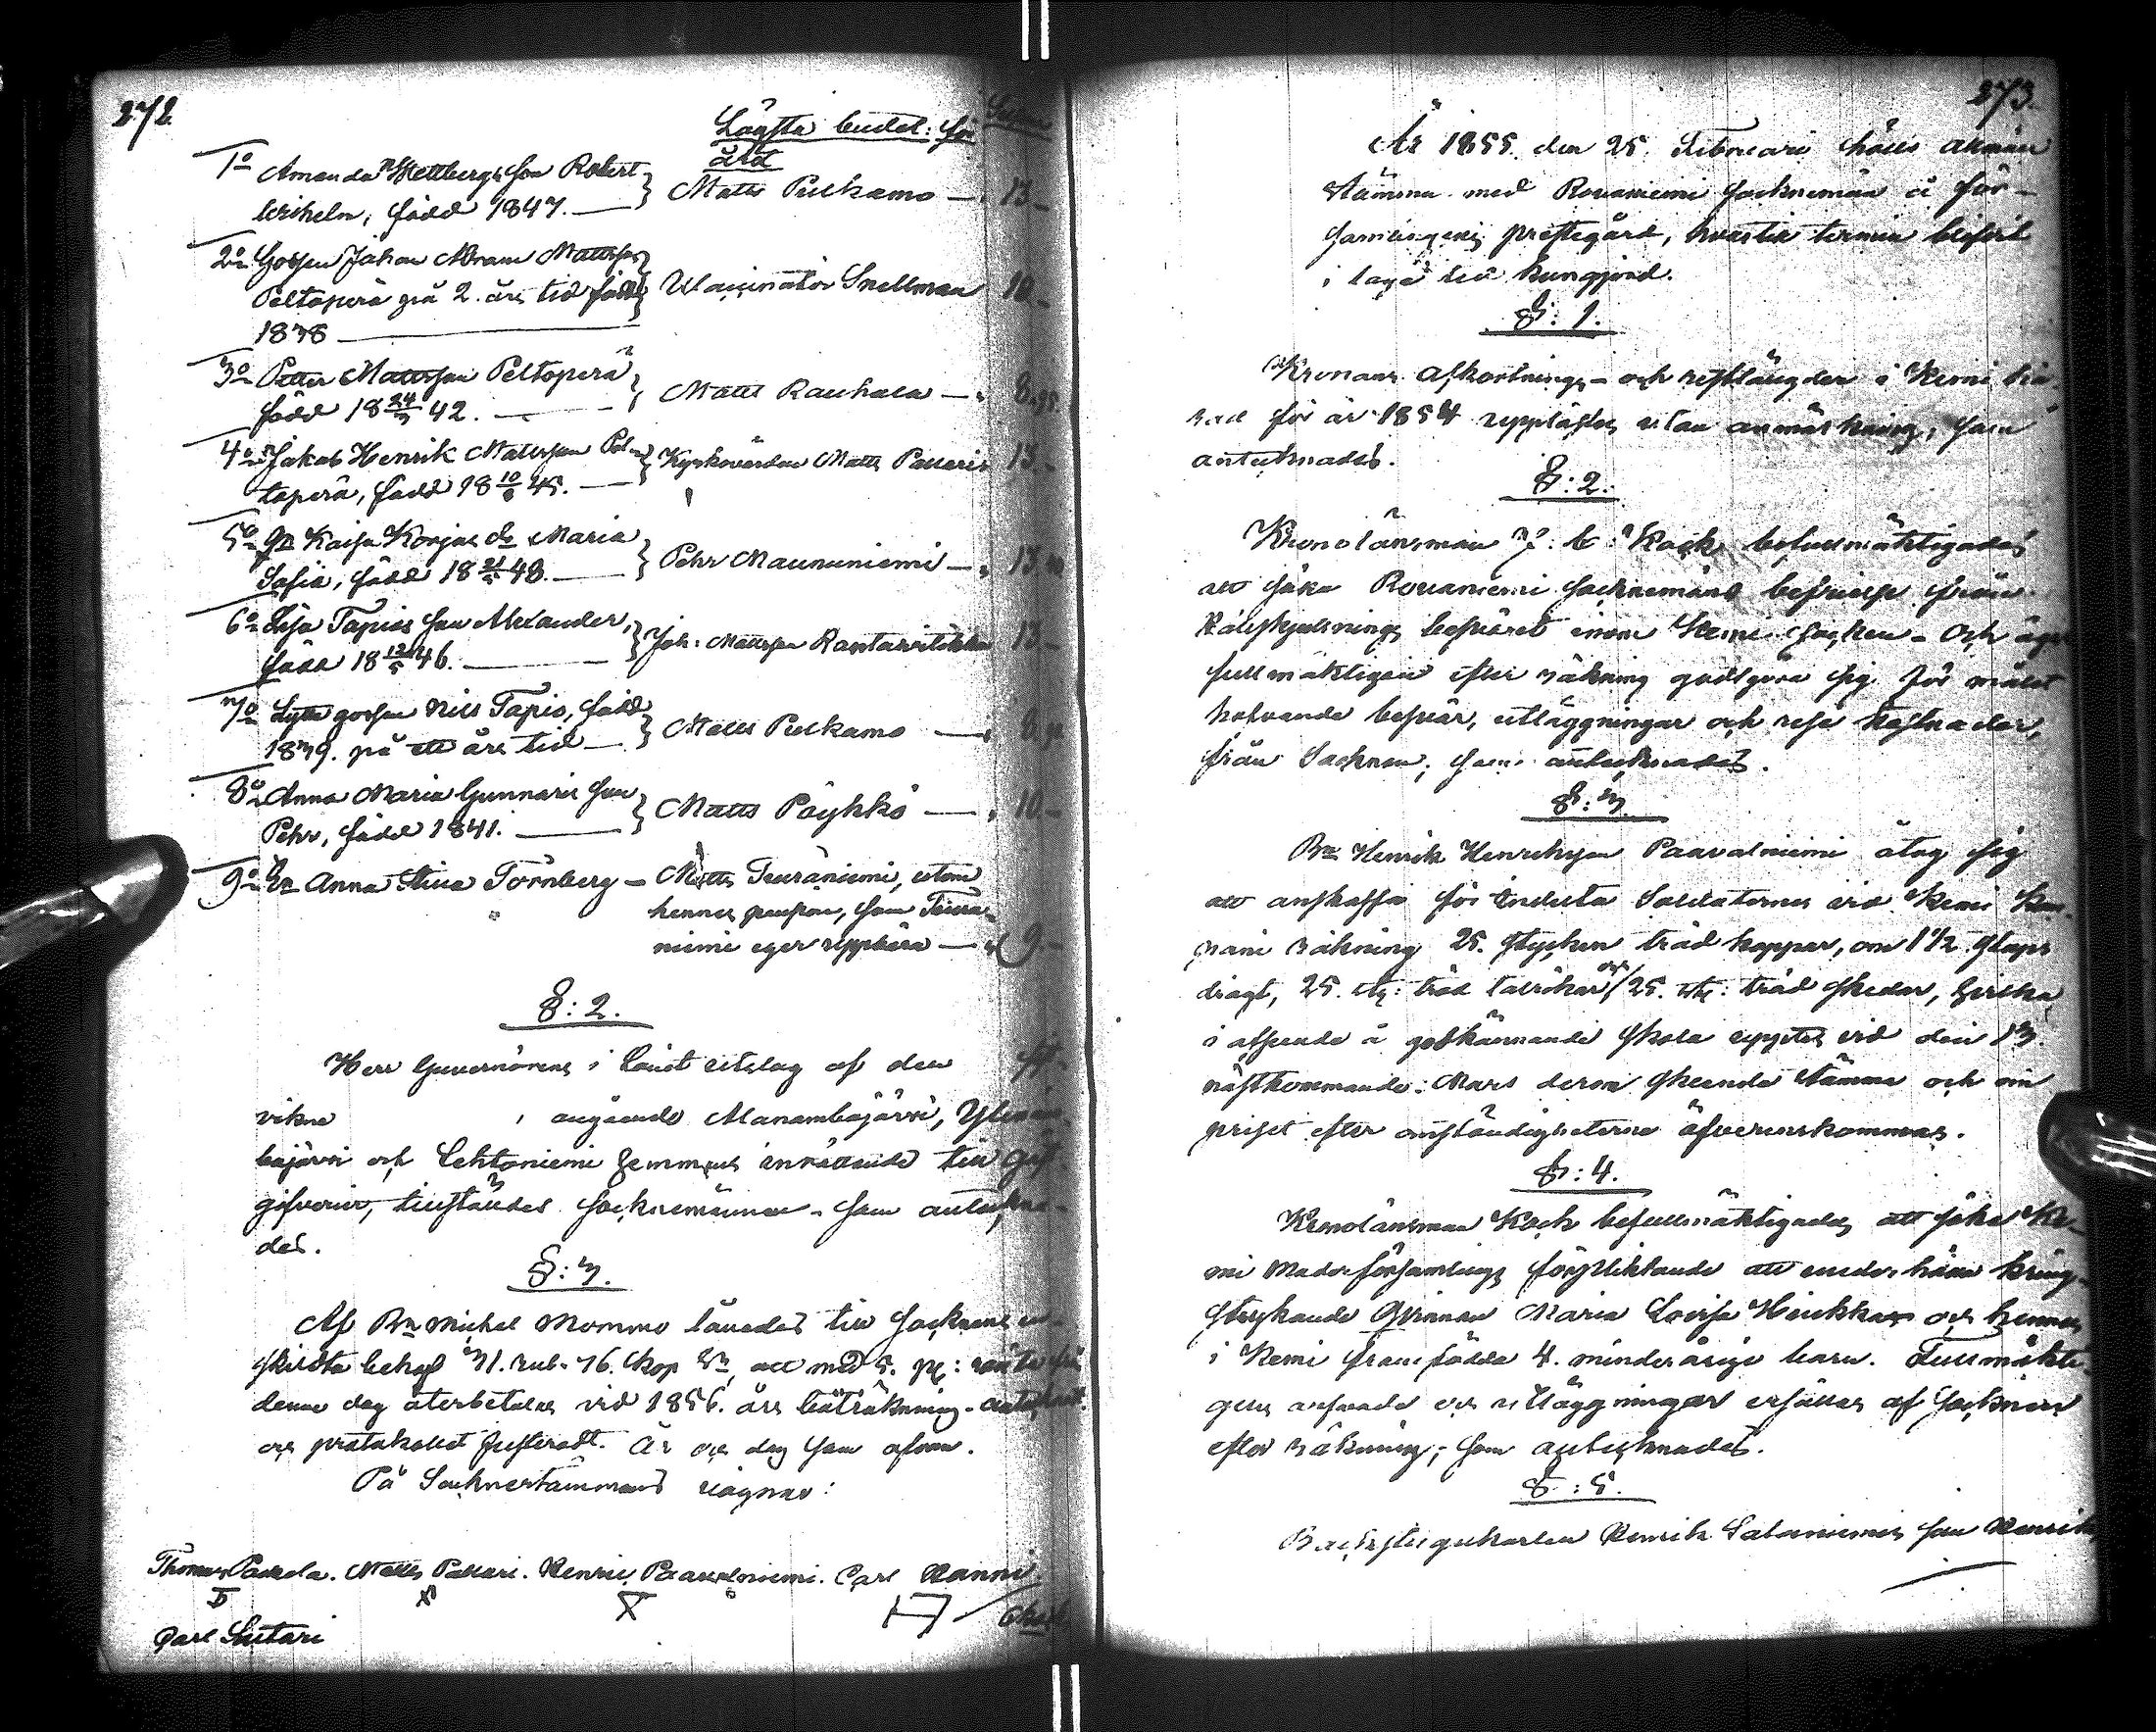 272.
Lägsta budet: för
året
1o Amanda Hellbergs son Robert
Wilhelm, född 1847. — Matts Pulkamo — 13.–
2o Gossen Johan Abram Mattsson
Peltoperä på 2. års tid född Vaccinatör Snellman 10.–
1838
3o Petter Mattsson Peltoperä
född 18 24/3 42. — Matts Rauhala — 8.
4o Jakob Henrik Mattsson Pel-
toperä, född 18 10/6 45. — Kyrkovärden Matts Pallari 13.–
5o Kaisa Korjas dr Maria
Sofia, född 18 21/5 48. — Pehr Maununiemi — 13
6o Lisa Tapios son Alexander,
född 18 12/5 46. — Joh: Mattsson 13.–
7o Lytte gossen Nils Tapio, född
1839. på ett års tid — Matts Pulkamo — 8.
8o Anna Maria Gunnaris son
Pehr, född 1841. — Matts Pöykkö — 10.–
9o Anna Stina Törnberg – Matts Teuräniemi, utom
hennes pension, som Teurä-
niemi eger uppbära — 9.–
§: 2.
Herr Guvernörens i Länet utslag af den
vikne , angående Manambajärvi, Yli
bajärvi och Lehtoniemi hemmans inrättande till gäst
gifverier, tillställdes Socknemännen – som anteckna-
des.
§: 3.
Af Bn Michel Mommo lånades till Socknens en-
skildta behof 31. rub. 76. kop Sr, att med 5. pC: ränta från
denna dag återbetalas vid 1856. års uträkning – antecknat.
och protokollet justeradt. År och dag som ofvan.
På Socknestämmans vägnar:
Thomas Paavola. Matts Pallari. Henric Paavalniemi. Carl Ranni.
Carl Suutari
273.
År 1855. den 25. Februari hölls allmän
stämma med Rovaniemi Socknemän å För-
samlingens prestegård, hvartill termin blifvit
i laga tid kungjord.
§: 1.
Kronans Afkortnings- och restlängder i Kemi hä-
rad för år 1854 upplästes utan anmärkning, som
antecknades.
§: 2.
Kronolänsman J: E: Kock befullmäktigades
att söka Rovaniemi Socknemäns befrielse från
Rådskjutsnings besväret inom Kemi Socken – Och äger
fullmäktigen efter räkning godtgöra sig för målet
hafvande besvär, utläggningar och rese kostnader,
från Socknen, som antecknades.
§: 3.
Bn Henrik Henriksson Paavalniemi åtog sig
att anskaffa för Indelta Soldaterne vid Kemi Kom-
pani räkning 25. stycken träd koppar, om 1 1/2 stops
drägt, 25. st: träd talrikar och 25. st: träd skedar, hvilka
i afseende å godkännande skola uppten vid den 13.
nästkommande Mars derom skeende Stämma och om
priset efter omständigheterna öfverenskommas.
§: 4.
Kronolänsman Kock befullmäktigades att söka Ke-
mi Moderförsamlings förpliktande att underhålla kring-
strykande Qvinnan Maria Lovisa Heikka och hennes
i Kemi framfödda 4. minderåriga barn. Fullmäkti-
gens arfvode och utläggningar ersättas af Socknen
efter räkning; som antecknades.
§: 5.
Backstugukarlen Henrik Sataniemis son Henrik